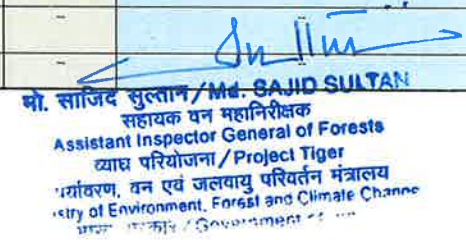 -
-
मो. साजिद सुल्तान / Md. SAJID SULTAN
सहायक वन महानिरीक्षक
Assistant Inspector General of Forests
व्याघ्र परियोजना / Project Tiger
पर्यावरण, वन एवं जलवायु परिवर्तन मंत्रालय
istry of Environment, Forest and Climate Change
/ Government